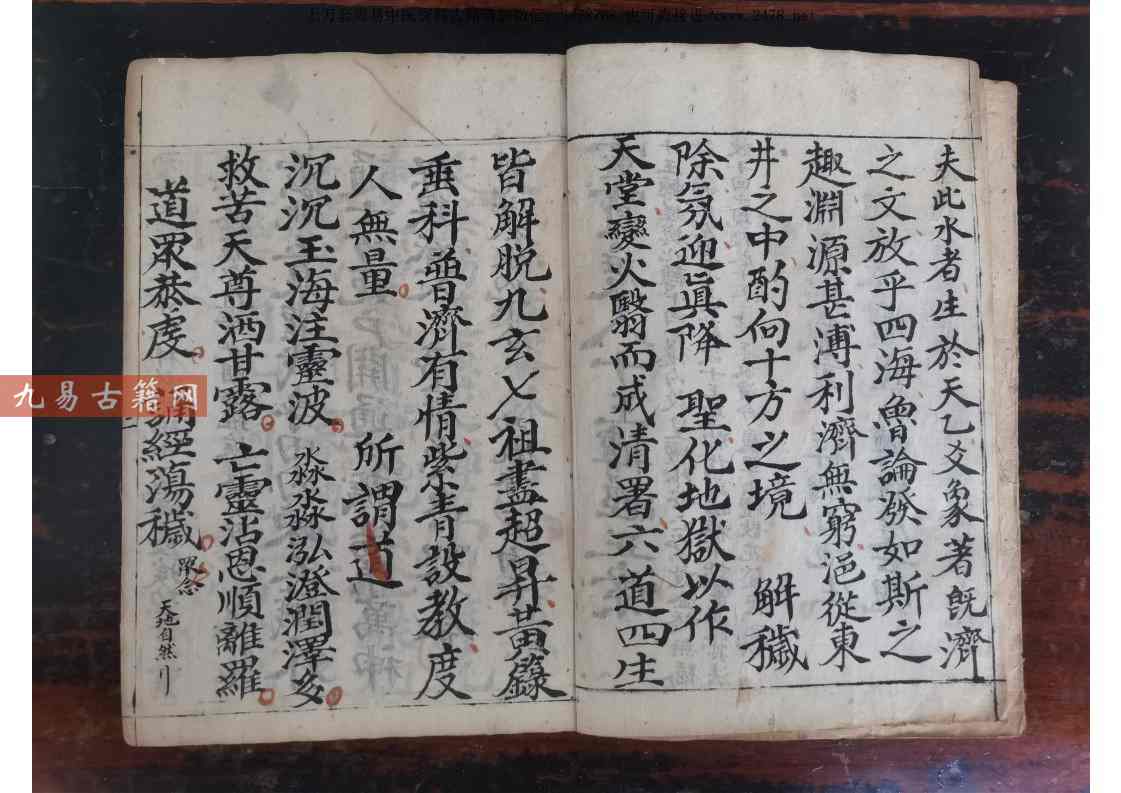 夫此水者生於天乙爻象著旣濟
之文放乎四海魯論發如斯之
趣淵源甚溥利濟無窮浥從東
井之中酌向十方之境 解穢
除氛迎眞降 聖化地獄以作
天堂變火翳而成清署六道四生
皆解脱九玄七祖盡超昇黃籙
垂科普濟有情紫青設教度
人無量 所謂道
沉沉玉海注靈波 淼淼泓澄潤澤多
救苦天尊洒甘露 亡靈沾恩順離羅
道眾恭虔 誦經蕩穢 眾念 天地自然
九易古籍网